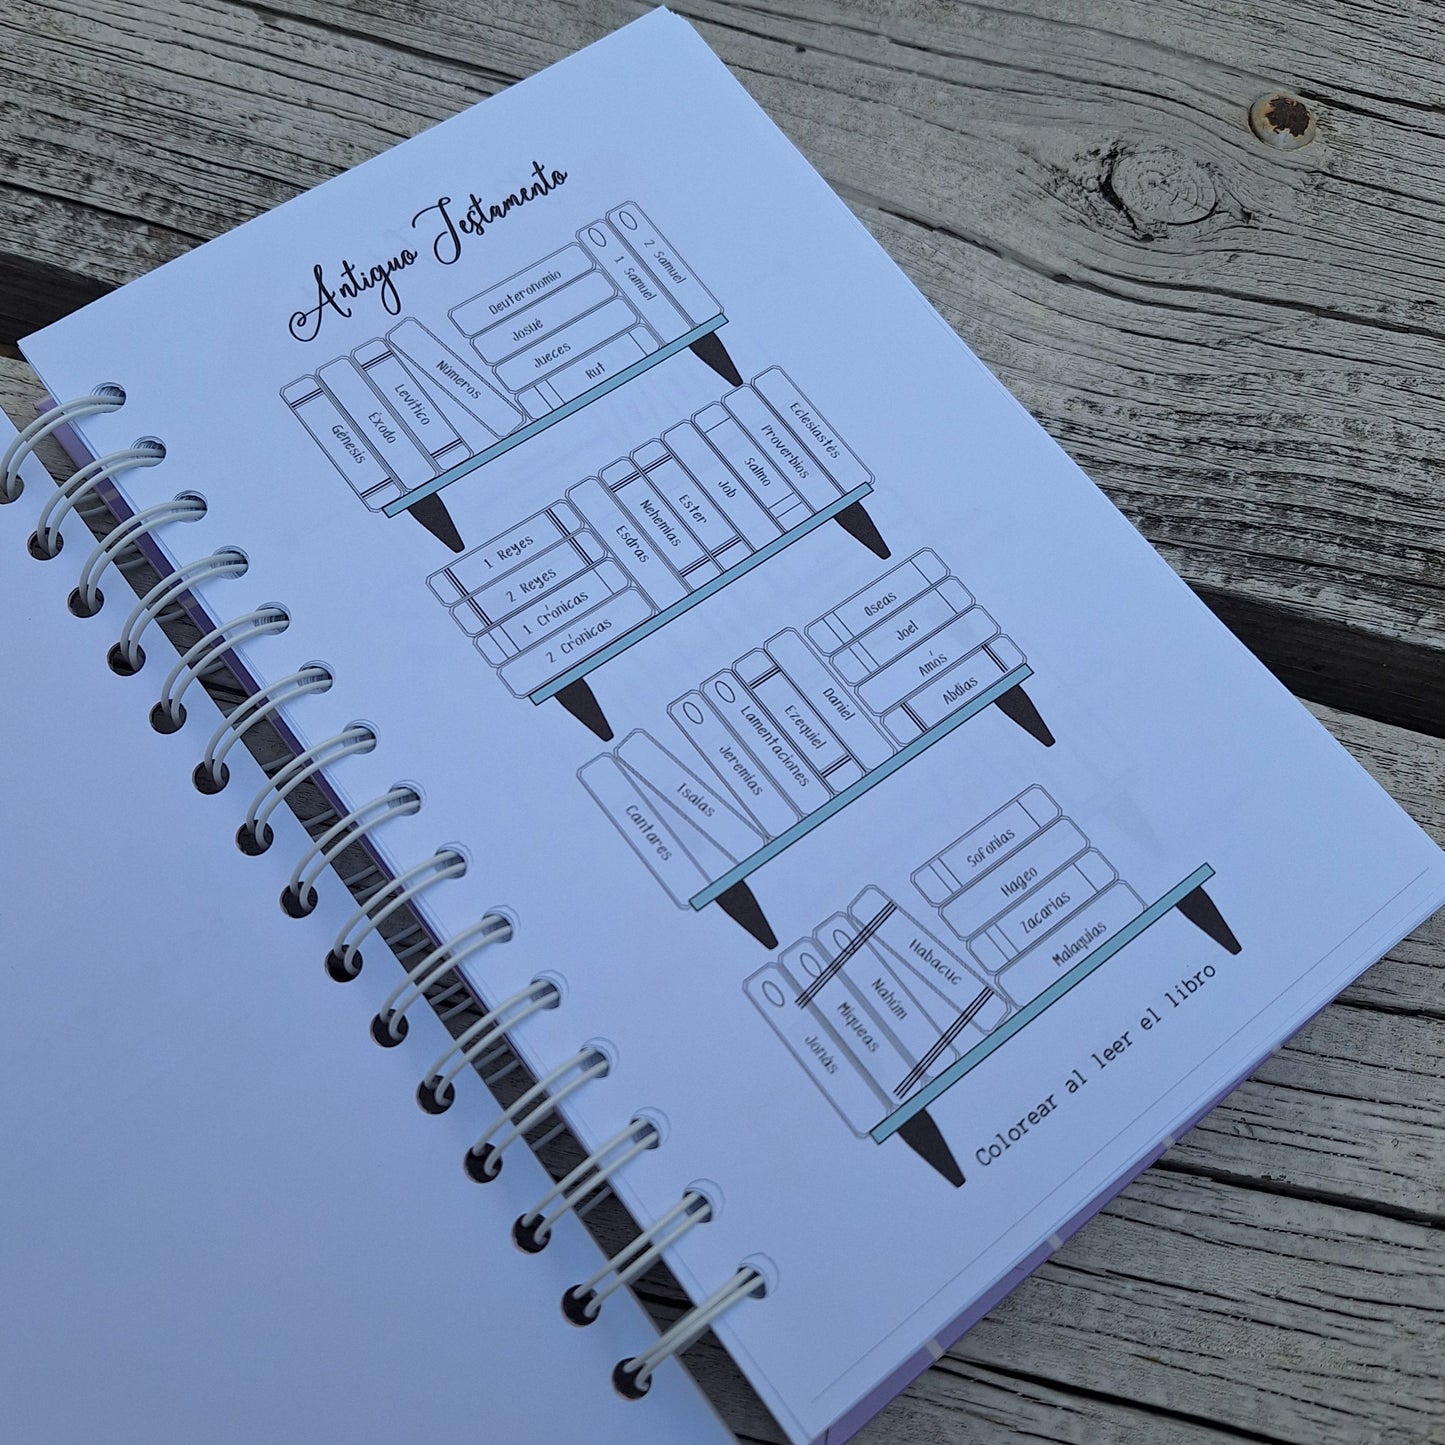 Antiguo Testamento
Génesis
Éxodo
Levítico
Números
Deuteronomio
Josué
Jueces
Rut
1 Samuel
2 Samuel
1 Reyes
2 Reyes
1 Crónicas
2 Crónicas
Esdras
Nehemías
Ester
Job
Salmo
Proverbios
Eclesiastés
Cantares
Isaías
Jeremías
Lamentaciones
Ezequiel
Daniel
Oseas
Joel
Amós
Abdías
Jonás
Miqueas
Nahúm
Habacuc
Sofonías
Hageo
Zacarías
Malaquías
Colorear al leer el libro